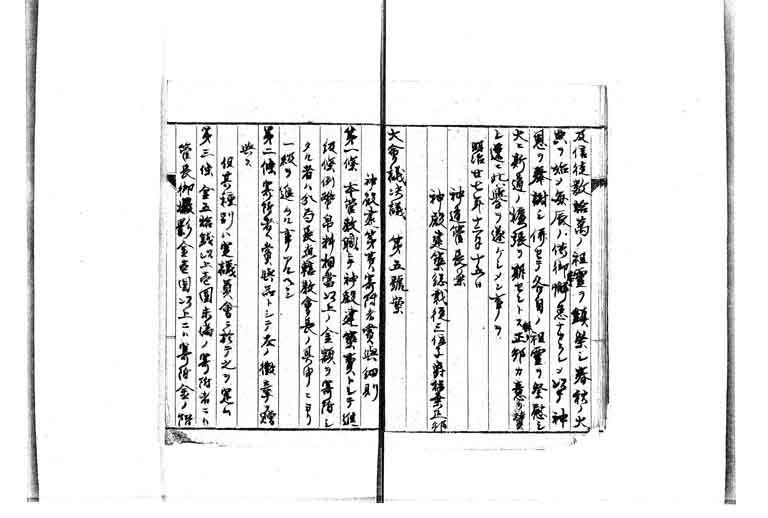 及信徒数拾萬ノ祖霊ヲ鎮祭シ春秋ノ大
典ヲ始メ毎辰ノ供御懈怠ナカラシメ以テ神
恩ヲ奉謝シ併セテ各自ノ祖霊ヲ祭慰シ
大ニ斯道ノ擴張ヲ期セントス正邦カ意ヲ賛
シ速ニ此典ヲ遂ケシメン事ヲ
明治廿七年十二月十五日
神道管長兼
神殿建築総裁従三位子爵稲葉正邦
大會議決議 第五號案
神殿建築第事寄附者賞與細則
第一條 本管教職ニテ神殿建築費トシテ進
級條例幣帛料相當以上ノ金額ヲ寄附シ
タル者ハ分局長直轄教會長ノ具申ニヨリ
一級ヲ進ムル事アルヘシ
第二條 寄附者賞與品トシテ左ノ徽章贈
與ス
但其種別ハ定議員會ニ於テ之ヲ定ム
第三條 金五拾銭以上壱圓未満ノ寄附者ニハ
管長御撮影金壱圓以上ニハ寄附金ノ階